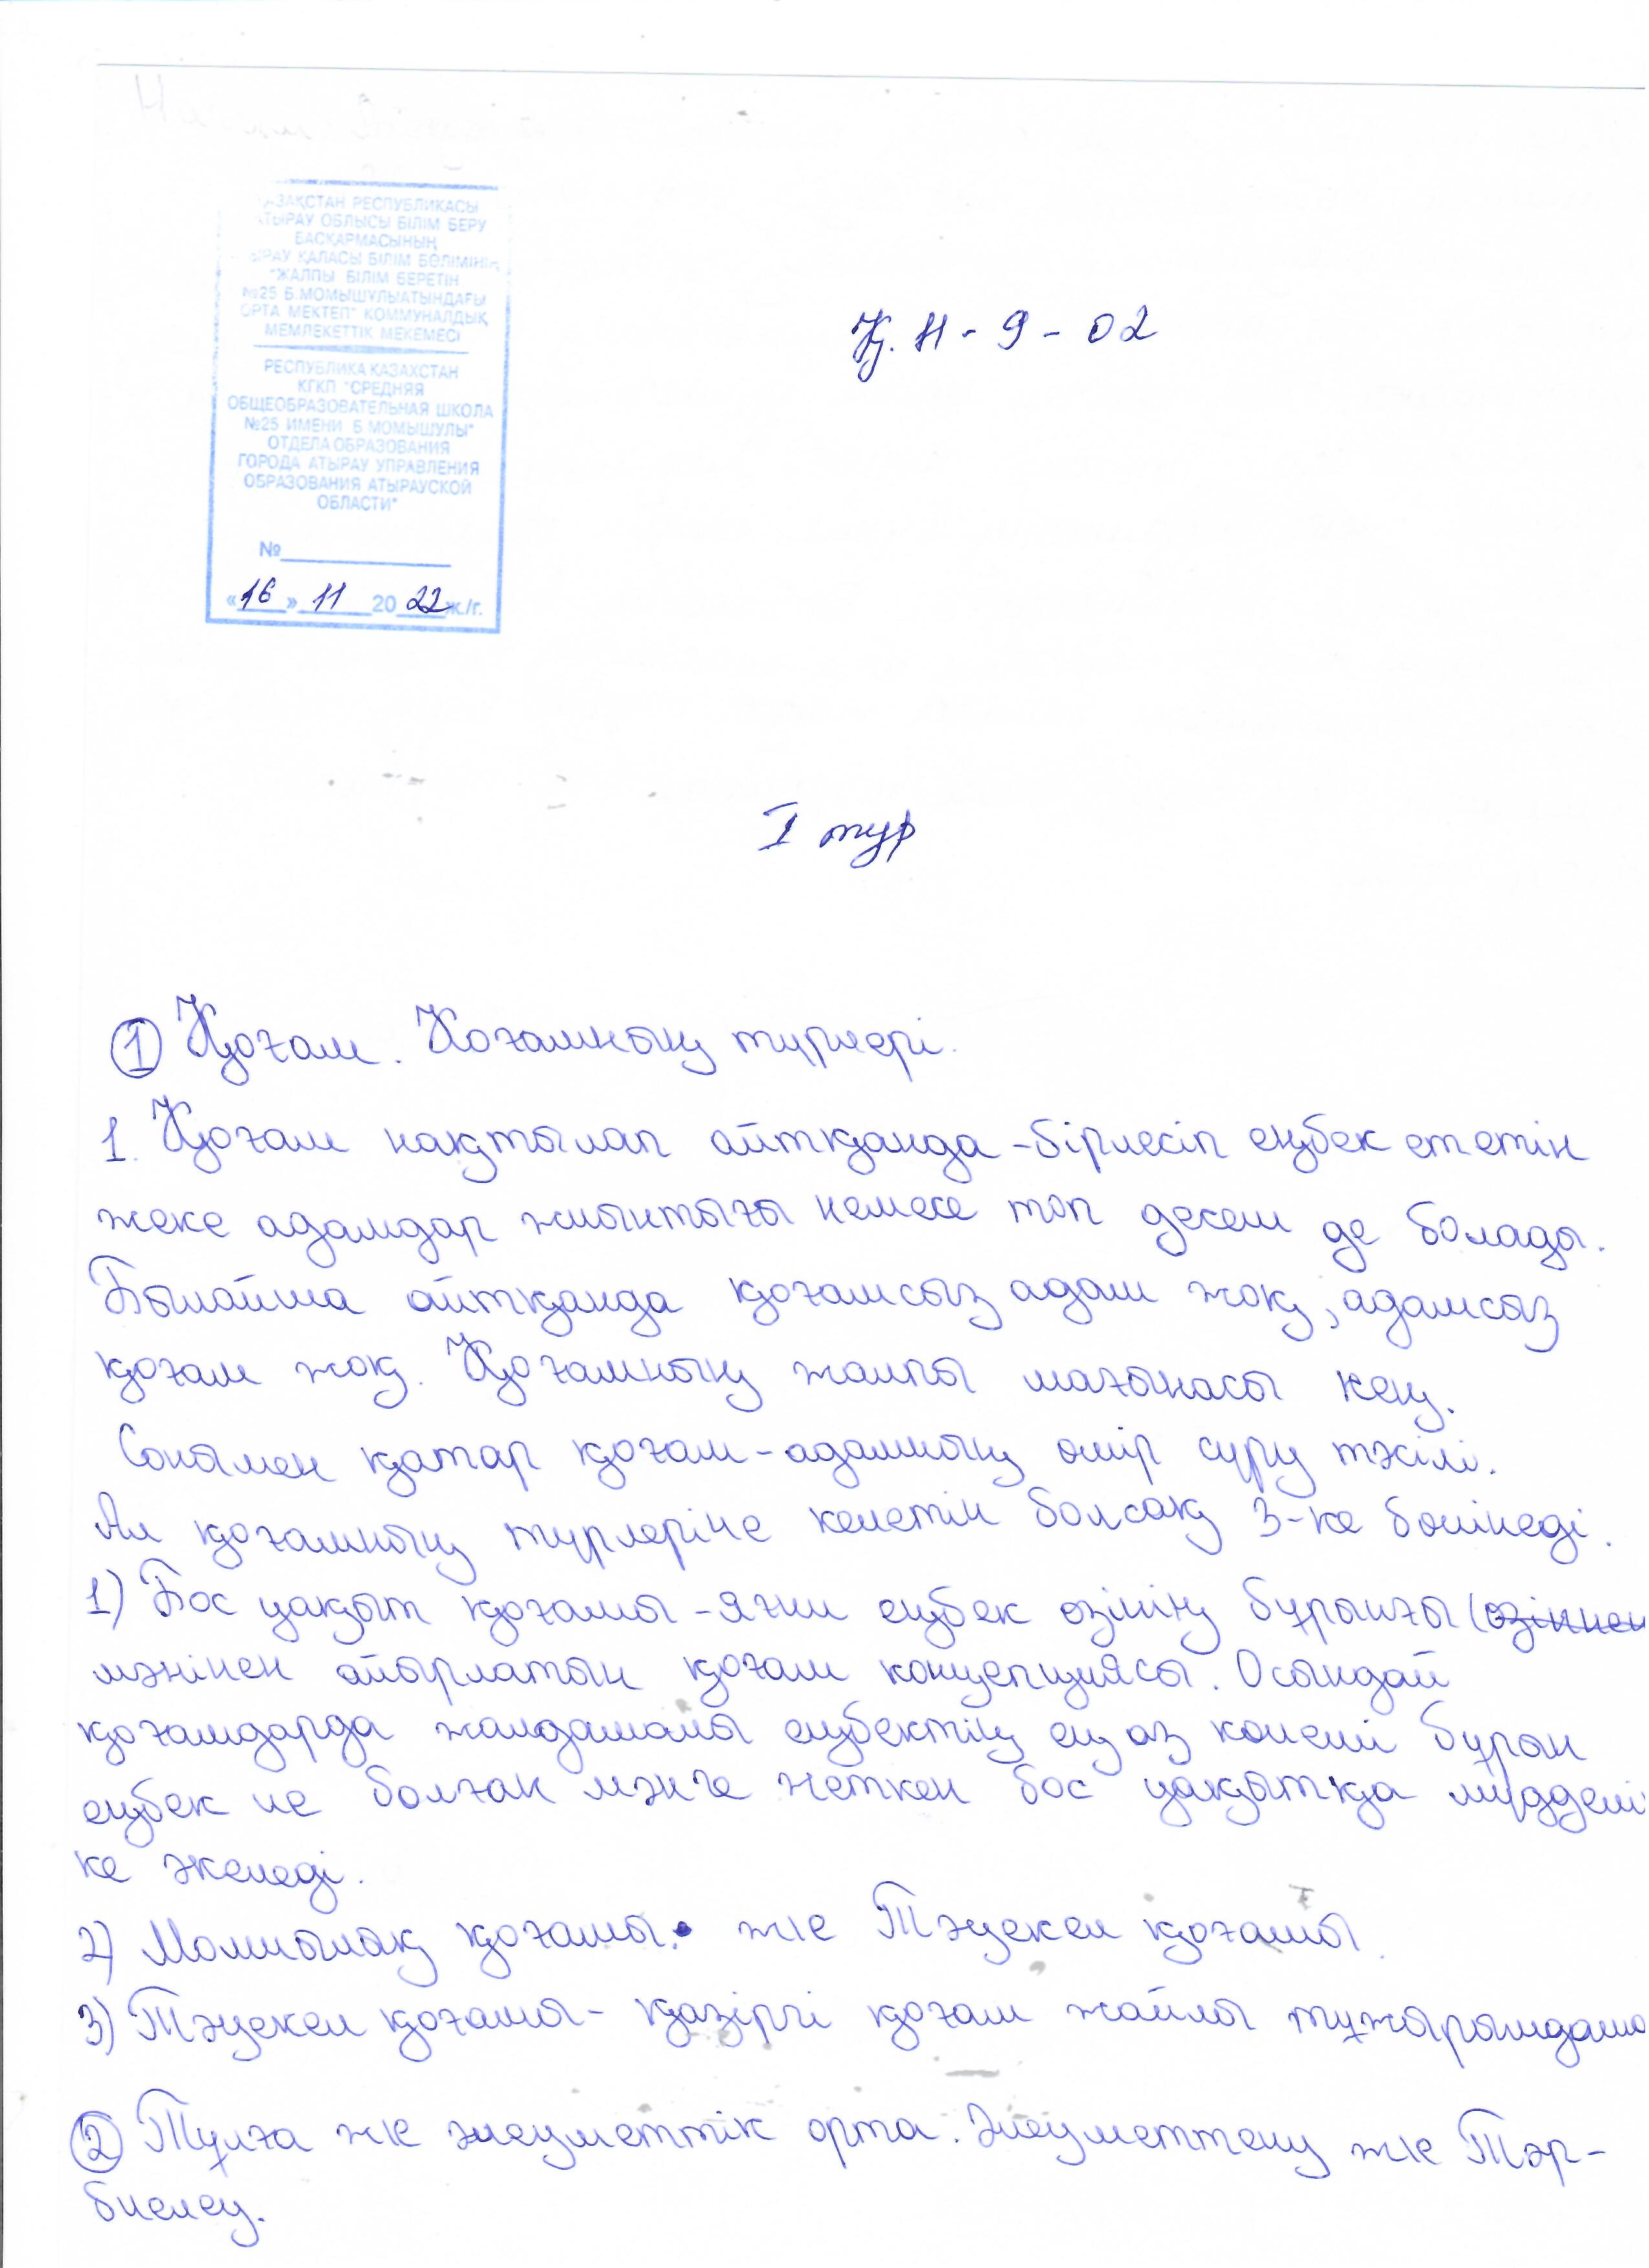 ҚАЗАҚСТАН РЕСПУБЛИКАСЫ
АТЫРАУ ОБЛЫСЫ БІЛІМ БЕРУ
БАСҚАРМАСЫНЫҢ
ЫРАУ ҚАЛАСЫ БІЛІМ БӨЛІМІНІҢ
"ЖАЛПЫ БІЛІМ БЕРЕТІН
№25 Б.МОМЫШҰЛЫАТЫНДАҒЫ
ОРТА МЕКТЕП" КОММУНАЛДЫҚ
МЕМЛЕКЕТТІК МЕКЕМЕСІ
РЕСПУБЛИКА КАЗАХСТАН
КГКП "СРЕДНЯЯ
ОБЩЕОБРАЗОВАТЕЛЬНАЯ ШКОЛА
№25 ИМЕНИ Б МОМЫШУЛЫ"
ОТДЕЛА ОБРАЗОВАНИЯ
ГОРОДА АТЫРАУ УПРАВЛЕНИЯ
ОБРАЗОВАНИЯ АТЫРАУСКОЙ
ОБЛАСТИ"
№
«16» 11 2022ж./г.
Қ.Н-9-02
I тур
① Қоғам. Қоғамның түрлері.
1. Қоғам нақтылап айтқанда -бірлесіп еңбек ететін
жеке адамдар жиынтығы немесе топ десем де болады.
Былайша айтқанда қоғамсыз адам жоқ, адамсыз
қоғам жоқ. Қоғамның жалпы мағынасы кең.
Сонымен қатар қоғам-адамның өмір сүру тәсілі.
Ал қоғамның түрлеріне келетін болсақ 3-ке бөлінеді.
1) Бос уақыт қоғамы -яғни еңбек өзінің бұрынғы (өзіннен
мәнінен айырлатын қоғам концепциясы. Осындай
қоғамдарда жалдамалы еңбектің ең аз көлемі бұрын
еңбек ие болған мәнге жеткен бос уақытқа мүдделі
ке әкеледі.
2) Молшылық қоғамы. жіе Тәуекел қоғамы.
3) Тәуекел қоғамы- қазіргі қоғам жайлы тұжырымдама
② Тұлға жіе әлеуметтік орта. Әлеуметтену жіе Тәр-
биелеу.